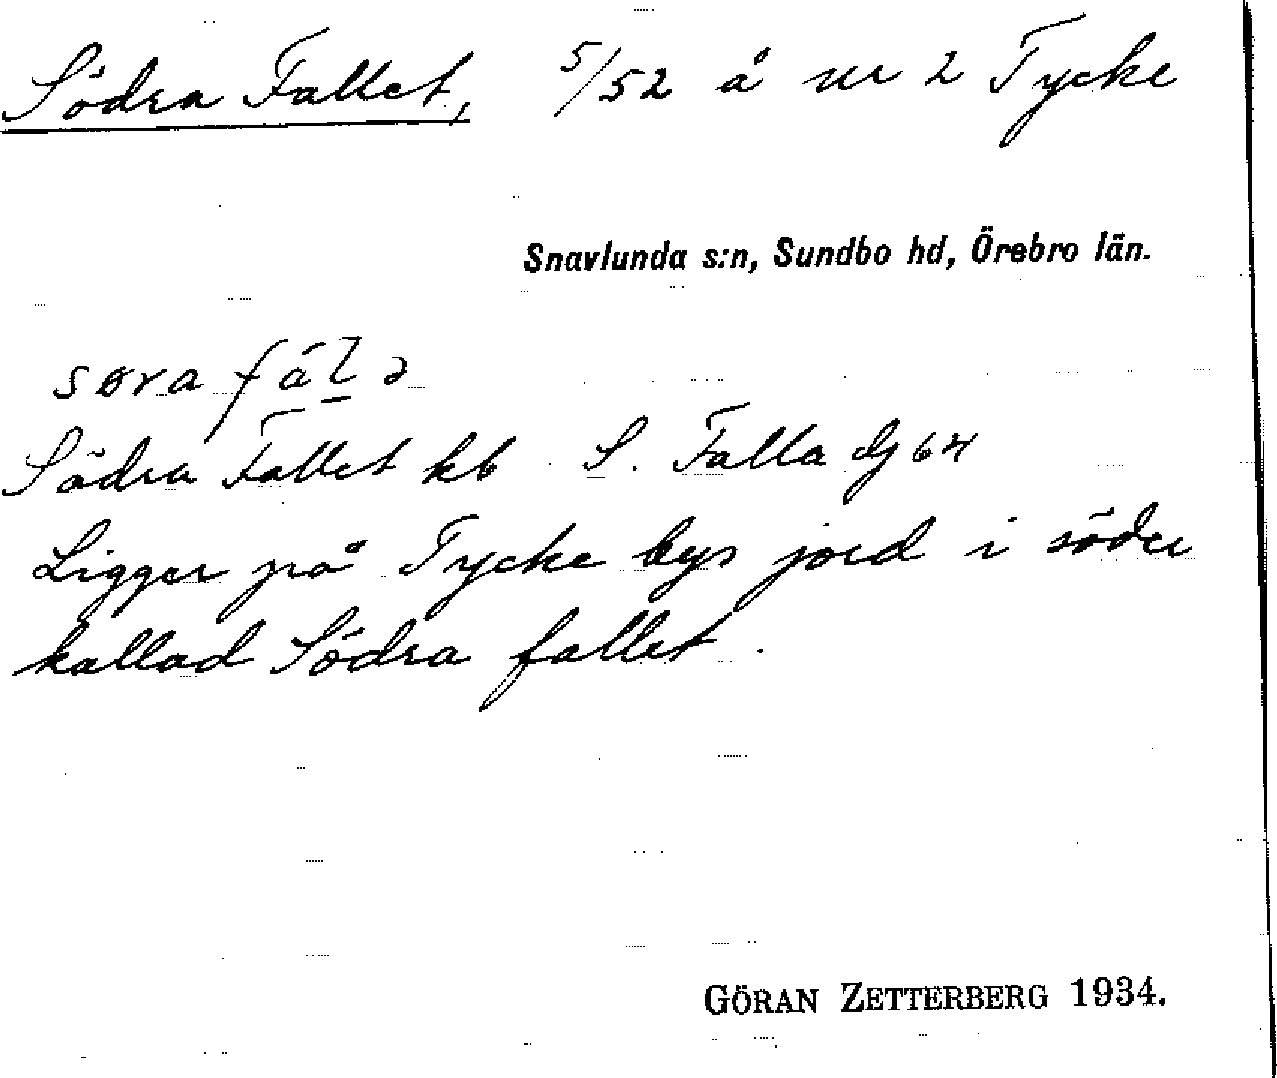 Södra Fallet, 5/52 å nr 2 Tycke
Snavlunda s:n, Sundbo hd, Örebro län.
søra fál̲ ə
Södra Fallet kb S. Falla dj 64
Ligger på Tycke bys jord i söder
kallad Södra fallet.
GÖRAN ZETTERBERG 1934.